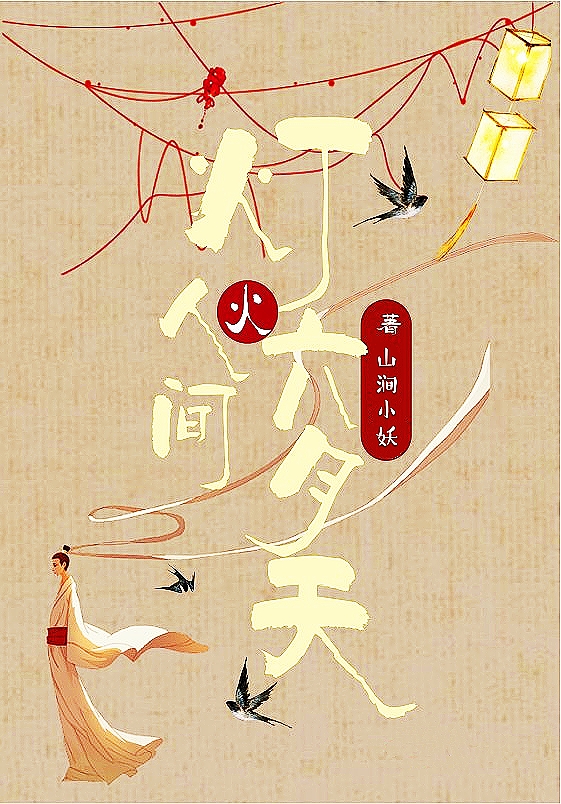 灯
火
人间
六月天
著山涧小妖